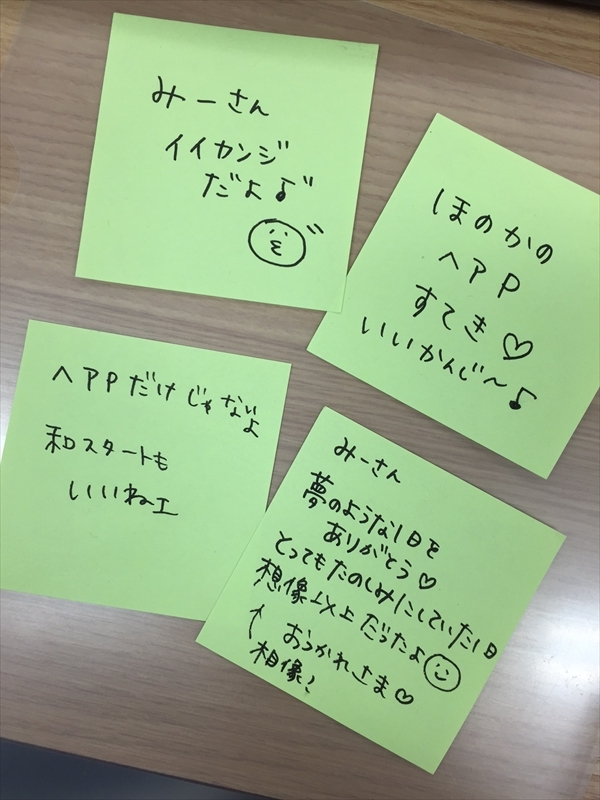 みーさん
イイカンジ
だよ♪"
ほのかの
ヘアP
すてき♡
いいかんじ〜♪
ヘアPだけじゃないよ
和スタートも
いいねェ
みーさん
夢のような1日を
ありがとう♡
とってもたのしみにしていた1日
想像以上だったよ☺
↑おつかれさま♡
想像!